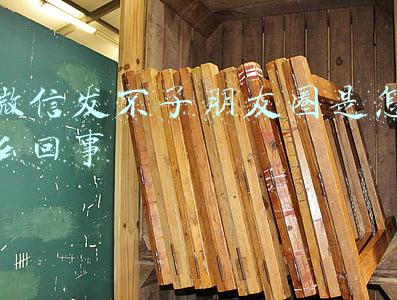 微信发不了朋友圈是怎
么回事